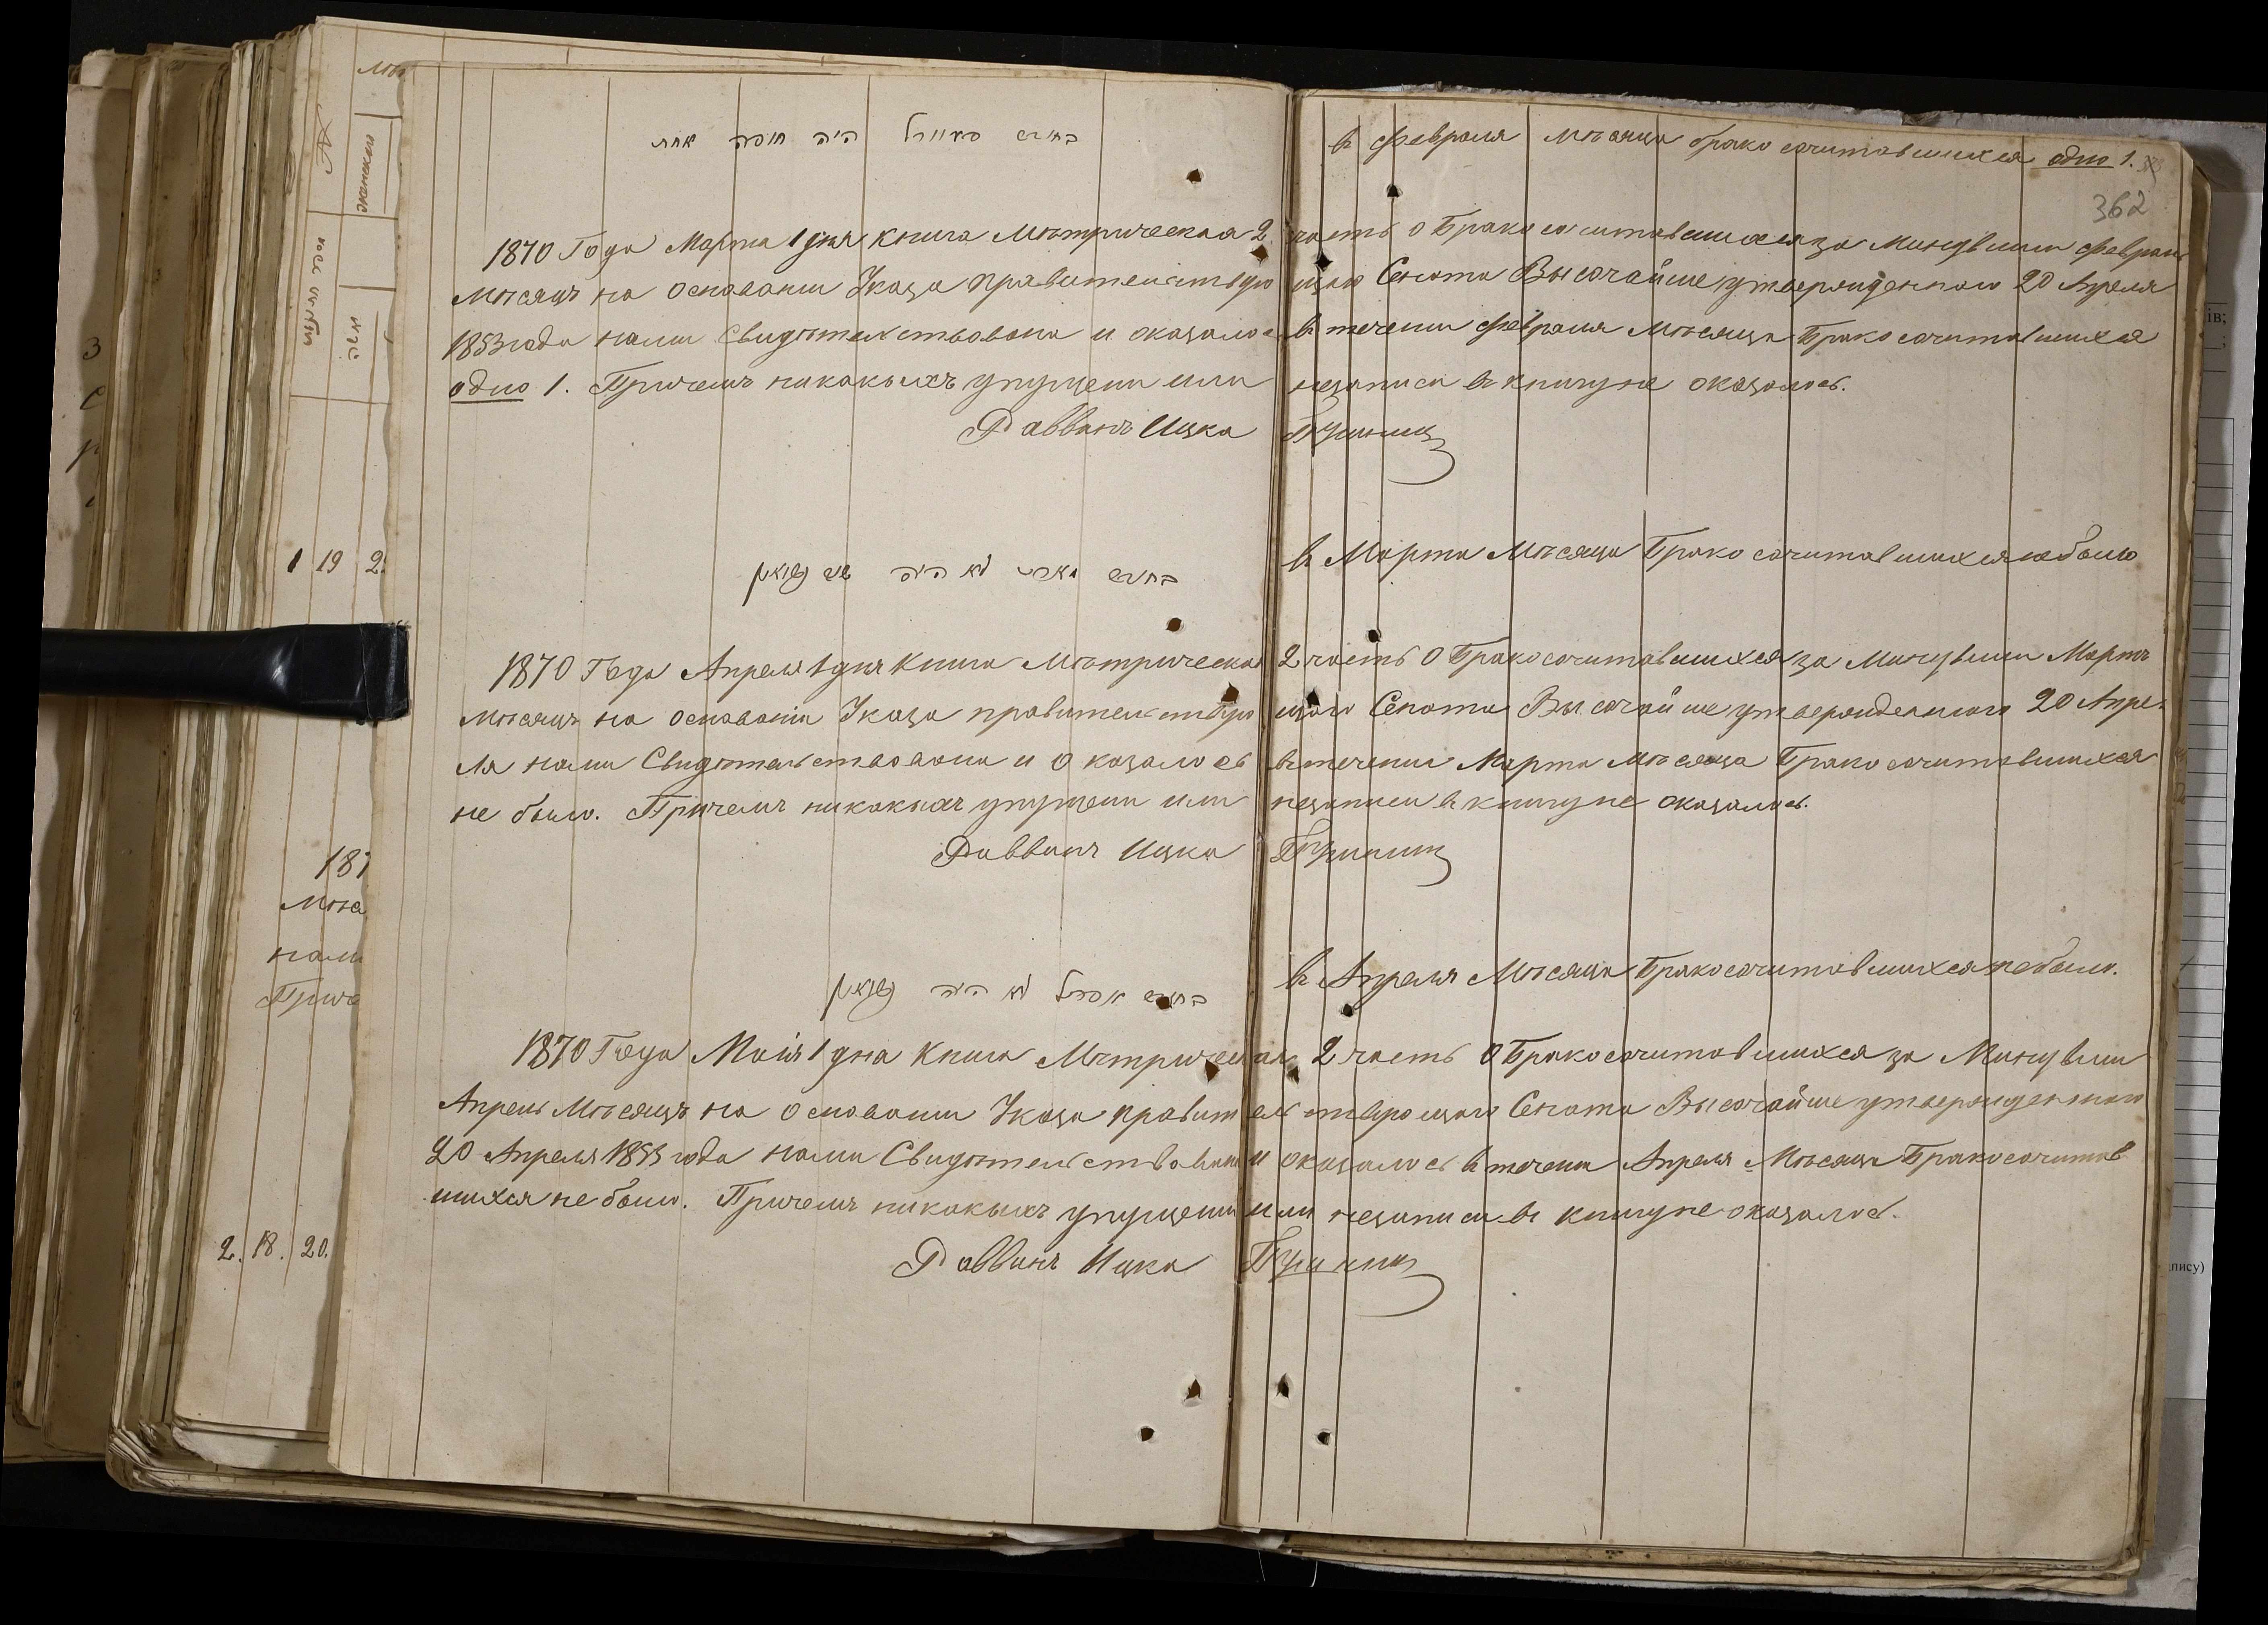 בחודש פעוור׳ היה חופה אחת
в Февраля Мѣсяца бракосочитавшихся одно 1.
362
1870 Года Марта 1 дня книга Мѣтрическая 2 часть о Бракосочитавшихся за Минувшии Февраль
Мѣсяцъ на основании Указа правительствующаго Сената Высочайше утвержденнаго 20 Апреля
1853 года нами Свидѣтельствована и оказалось в течении Февраля Мѣсяца Бракосочитавшихся
одно 1. Причемъ никакыхъ упущени или незаписи в книгу не оказалось.
Раввинъ Ицка
в Марта Мѣсяца Бракосочитавшихся небыло
בחודש מארט לא היה שום
1870 Года Апреля 1 дня Книга Мѣтрическая 2 часть О Бракосочитавшихся за Минувшии Мартъ
Мѣсяцъ на основаніи Указа правительствующаго Сената Высочайше утвержденнаго 20 Апре-
ля нами Свидѣтельствована и Оказалось в течении Марта Мѣсяца Бракосочитавшихся
не было. Причемъ никакихъ упущени или незаписи в книгу не оказалось.
Раввинъ Ицка
в Апреля Мѣсяца Бракосочитавшихся небыло.
בחודש אפריל לא היה
1870 Года Маія 1 дна Книга Мѣтрическая 2 часть О Бракосочитавшихся за Минувшии
Апрель Мѣсяцъ на Основании Указа правительствующаго Сената Высочайше утвержденнаго
20 Апреля 1853 года нами Свидѣтельствована и оказалось в течени Апреля Мѣсяца Бракосочитав
шихся не было. Причемъ никакыхъ упущени или незаписи в книгу не оказалось.
Раввинъ Ицка
женскаго
1 19 2
187
Мѣся
нами
Приче
2. 18. 20.